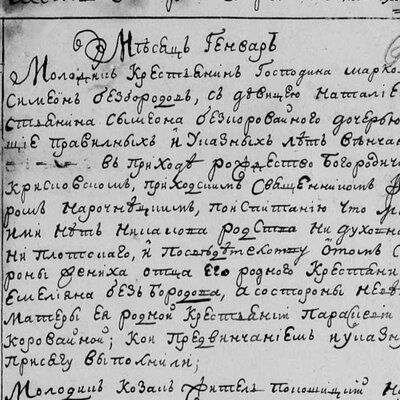 Мѣсяцъ Генварь
Молодикъ Крестьянинъ Господина марко
Симеонъ безбородовъ, съ дѣвицею наталіе
стьянина Симеона безкоровайного дочерью
щіе правилныхъ и указныхъ лѣтъ вѣнча
въ приходѣ рождество Богородич
Крисковскомъ, приходскимъ Священникомъ
ромъ нарочнѣцкимъ, по испитанію что м
ими нѣтъ никакова родства ни духовна
ни плотского, и посвѣдѣтелству о томъ с
роны жениха отца его родного Крестьяни
Емеліяна безъбородова, а состороны невѣ
матеры ея родной Крестьянки Параскев
Коровайной; кои предвинчаніемъ и указн
Присягу выполнили;
Молодикъ Козакъ житель